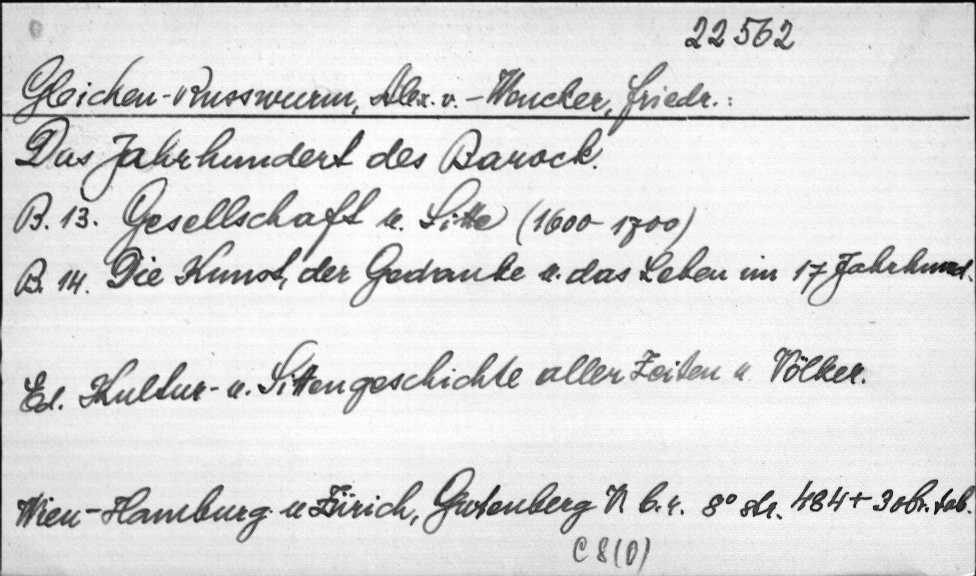 22562
Gleichen-Russwurm, Alex. v. - Wencker, Friedr.:
Das Jahrhundert des Barock.
B. 13. Gesellschaft u. Sitte (1600-1700)
B. 14. Die Kunst, der Gedanke u. das Leben im 17 Jahrhund.
Ed. Kultur- u. Sittengeschichte aller Zeiten u. Völker.
Wien-Hamburg u Zürich, Gutenberg V b.r. 8° str. 484+3 obr. tab.
C 8(0)